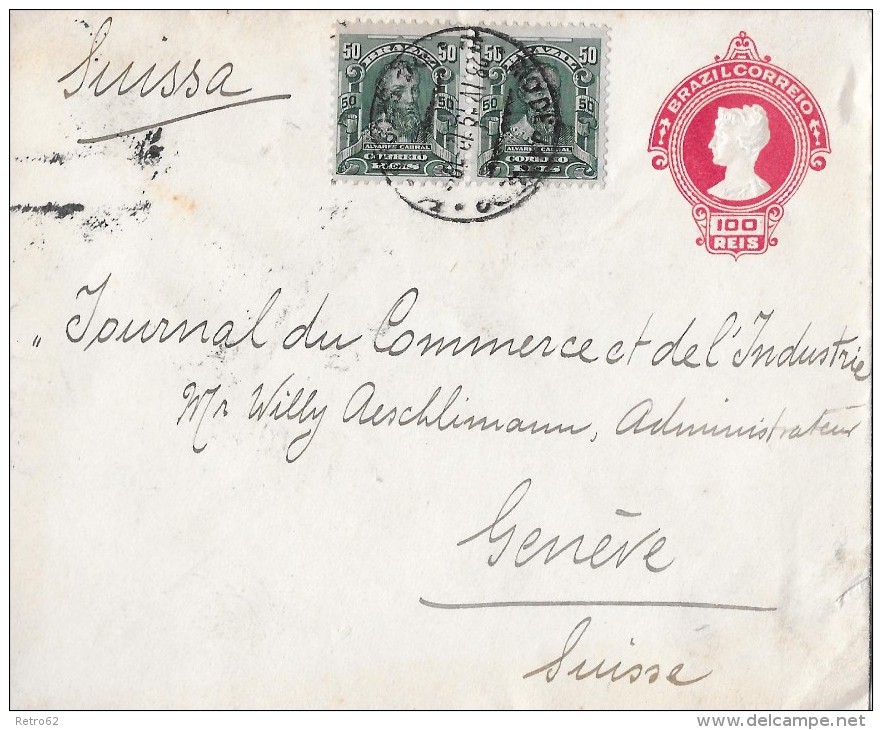 Suissa
50 BRAZIL 50
50 50
ALVARES CABRAL
CORREIO
REIS
50 BRAZIL 50
50 50
ALVARES CABRAL
CORREIO
REIS
BRAZIL CORREIO
100
REIS
" Journal du Commerce et de l'Industrie
Mr Willy Aeschlimann, Administrateur
Genève
Suisse
Retro62
delcampe.net